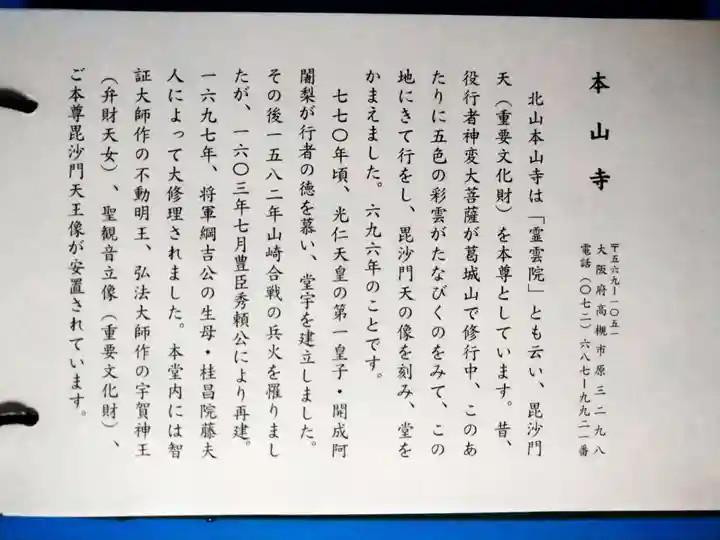 本山寺
〒五六九ー一〇五一
大阪府高槻市原三二九八
電話（〇七二）六八七ー九九二一番
北山本山寺は「霊雲院」とも云い、毘沙門
天（重要文化財）を本尊としています。昔、
役行者神変大菩薩が葛城山で修行中、このあ
たりに五色の彩雲がたなびくのをみて、この
地にきて行をし、毘沙門天の像を刻み、堂を
かまえました。六九六年のことです。
七七〇年頃、光仁天皇の第一皇子・開成阿
闍梨が行者の徳を慕い、堂宇を建立しました。
その後一五八二年山崎合戦の兵火を罹りまし
たが、一六〇三年七月豊臣秀頼公により再建。
一六九七年、将軍綱吉公の生母・桂昌院藤夫
人によって大修理されました。本堂内には智
証大師作の不動明王、弘法大師作の宇賀神王
（弁財天女）、聖観音立像（重要文化財）、
ご本尊毘沙門天王像が安置されています。